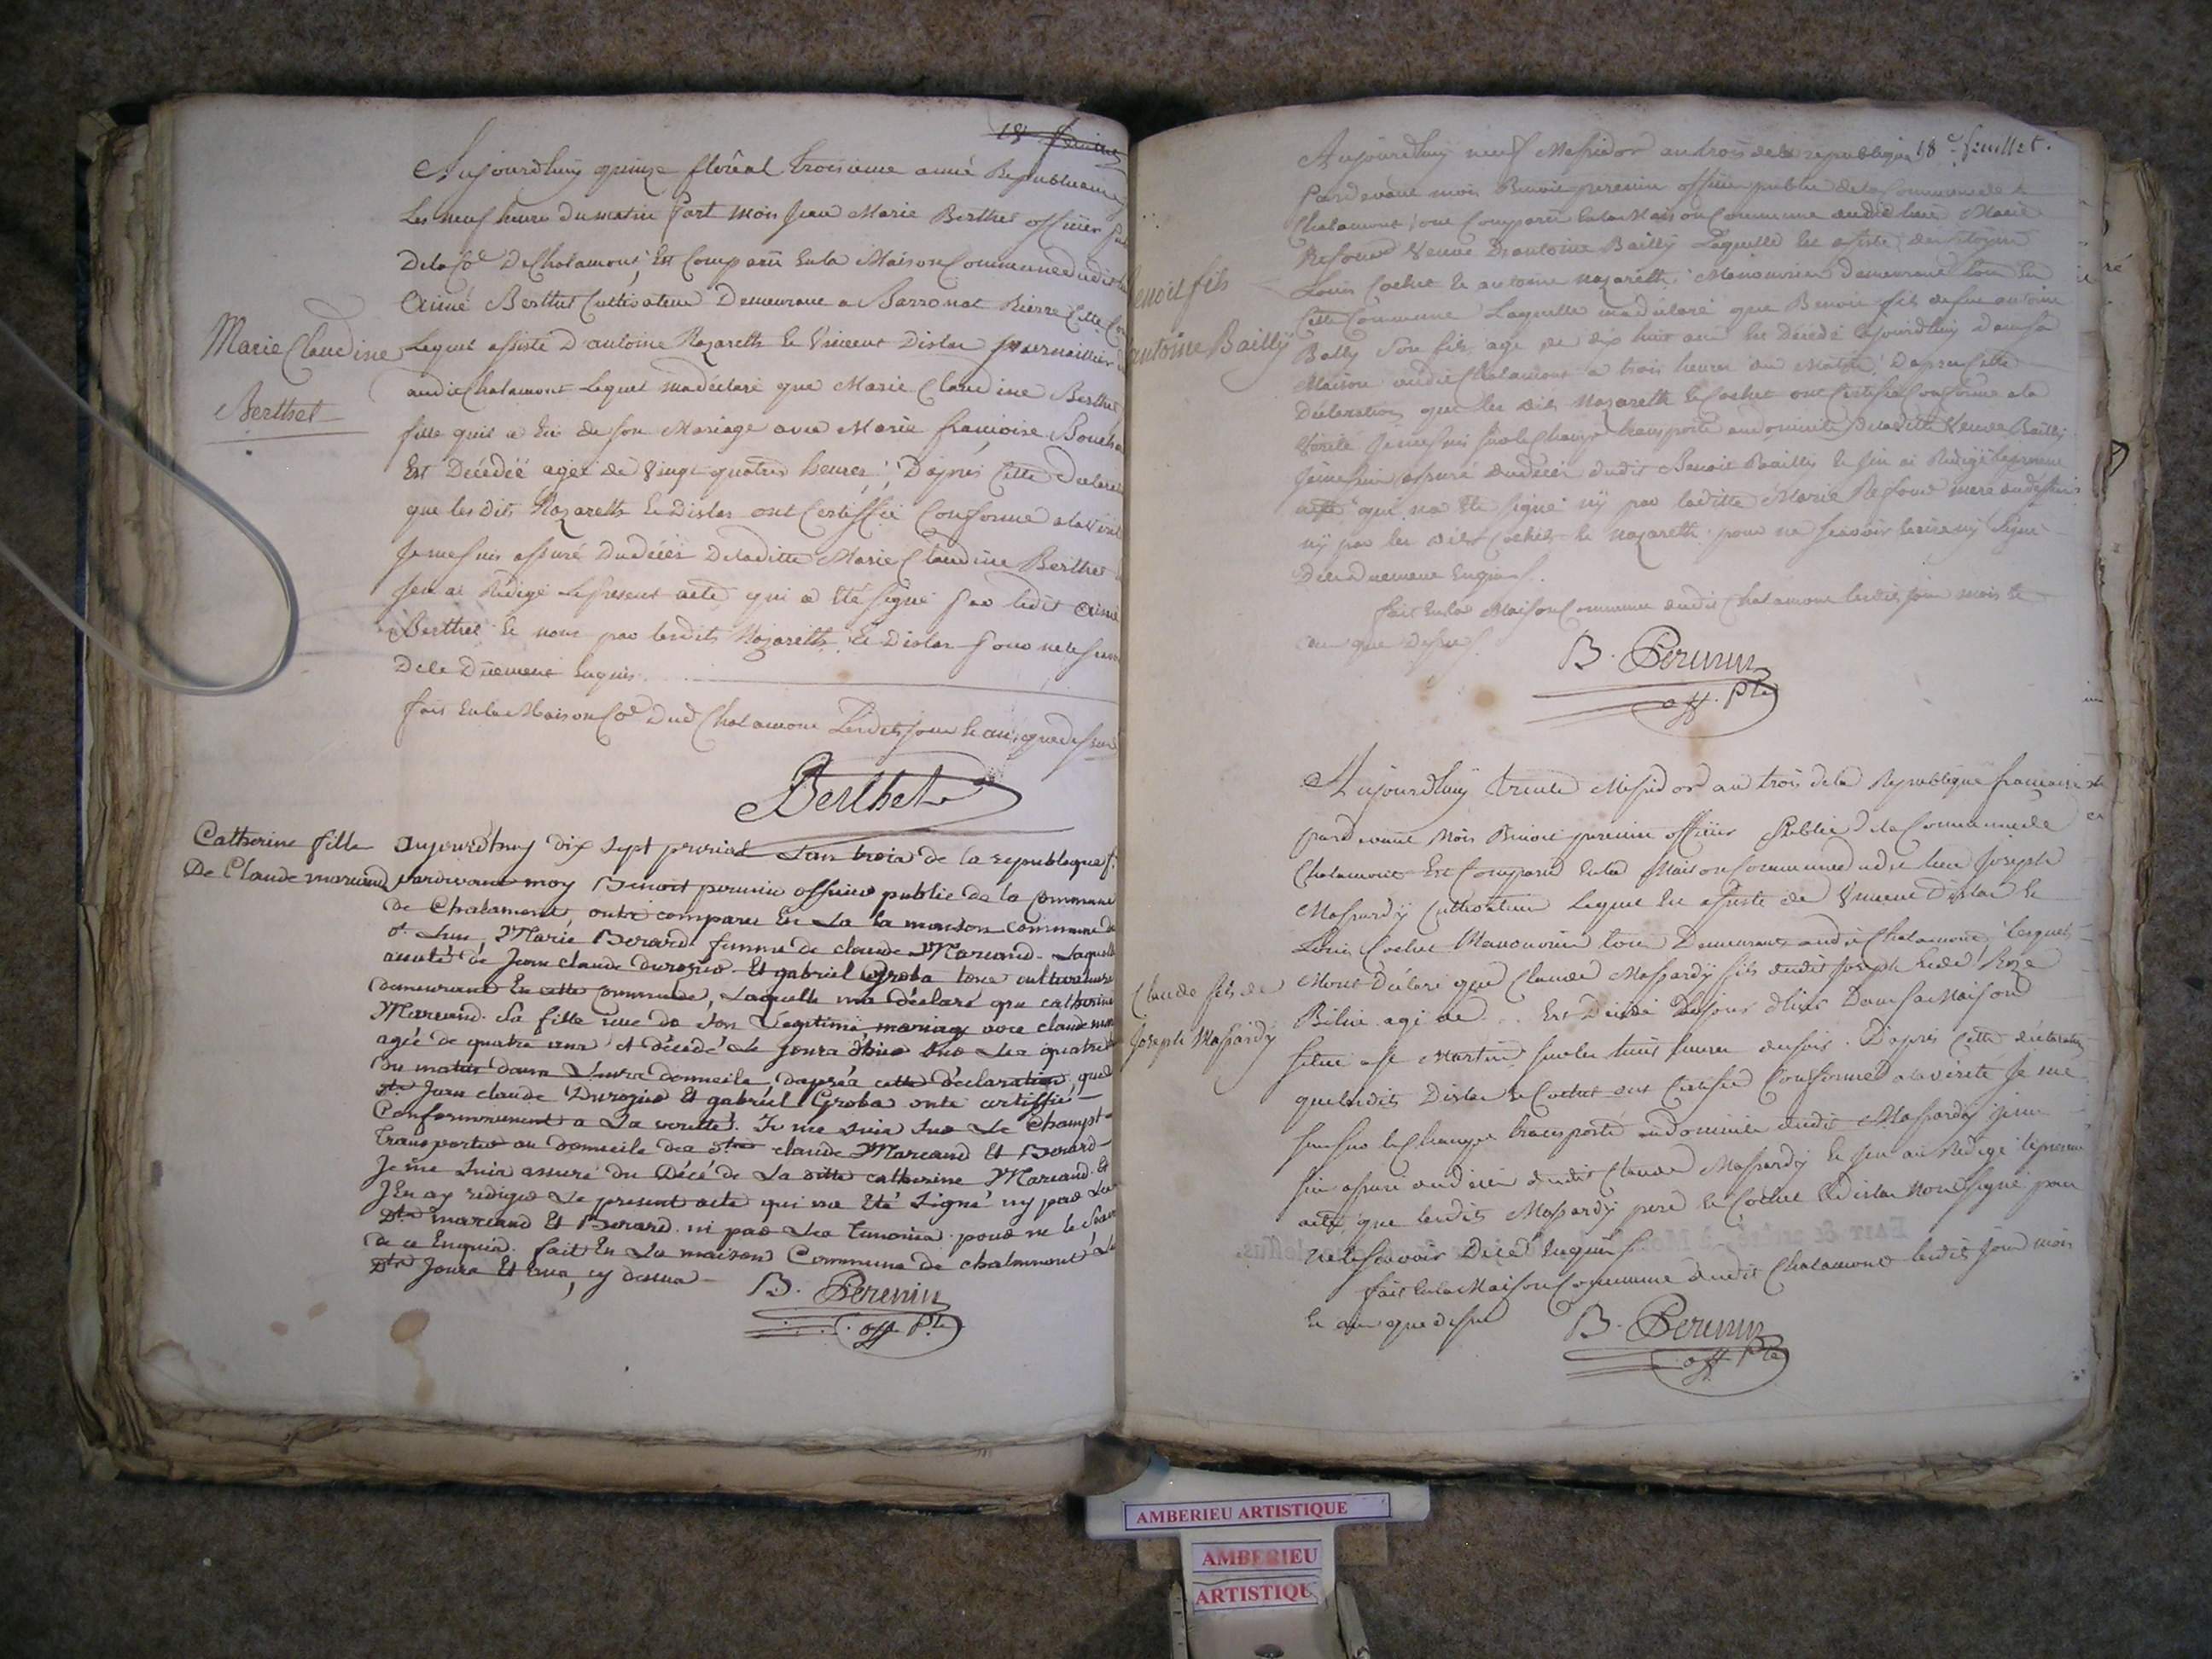 18e feuillet
Aujourdhuy quinze floréal troisieme anné Republicaine
Les neuf heures du matin Part mois Jean Marie Berthet officier
Dela Coe De Chalamont, Est Comparu En la Maison Commune dudit
Aimé Berthet Cultivateur Demeurant a Barronat Pierre Cette
Marie Claudine
Berthet
Lequel assisté D'antoine Nazareth Et Vincent Dislar journaillier
audit Chalamont Lequel ma déclaré que Marie Claudine Berthet
fille quil a Eu de son Mariage avec Marie françoise
Est Décédéé agéé de Vingt quatres heures, D'après Cette
que les Dits Nazareth Et Dislar ont Certiffié Conforme a la
Je me suis assuré Du décéé De laditte Marie Claudine Berthet
Jen ai Rédigé Le present acte qui a Eté signé par ledit Aimé
Berthet Et non par lesdits Nazareth Et Dislar
De Ce Duement Enquis
fait En la Maison Coe Dud Chalamont Lesdits jour Et an que dessus
Berthet
Catherine fille
De Claude marcand
aujourdhuy dix sept prerial Lan trois de la republique f.
pardevant moy Benoit perenin officier public de la Commune
de Chalamont, ont comparu En La la maison Commune
Marie Berard femme de claude Marcand Laquelle
de Jean claude durozier Et gabriel Groba tous cultivateurs
demeurant En cette Commune, Laquelle ma déclaré que catherine
Marcand Sa fille de Son Legitime mariage avec claude
agéé de quatre ans Et décédé Le Jours
du matin dans Leurs domicile, daprés cette déclaration, que
dts Jean claude Durozier Et gabriel Groba onts certiffié
Conformement a La verité. Je me suis Sur Le Champt
Transporter au domicile des dits claude Marcand Et Berard
Je me Suis assuré du Décé de La ditte catherine Marcand Et
JEn ay rediger Le present acte qui na Eté Signé ny par Les
dts marcand Et Berard ni par Les temoins pour ne le
de ce Enquis. fait En La maison Commune de chalamont Les
dts Jours Et ans, cy dessus
B. Perenin
off. Ple
18e feuillet.
Aujourdhuy neuf Messidor an trois dela republique
Pardevant mois Benoit perenin officier public dela Commune de
Chalamont, ont Comparu En la Maison Commune dudit lieu Marie
Veuve D'antoine Bailly Laquelle Est assisté des Citoyens
Louis Cochet Et antoine Nazareth Manouvriers demeurant tous En
Benoit fils
antoine Bailly
Cette Commune Laquelle ma déclaré que Benoit fils de feu antoine
Bally Son fils agé de dix huit ans Est Décédé Cejourdhuy Dans sa
Maison audit Chalamont a trois heures du Matin, Daprès Cette
Déclaration que les dits Nazareth Et Cochet ont Certifié Conforme a la
Verité Je me suis sur le Champs transporté au domicile De laditte Veuve Bailly
Je me suis assuré du décéé dudit Benoit Bailly Et Jen ai Rédigé le present
acte qui na Eté signé ny par laditte Marie mere
ny par les dits Cochet Et Nazareth pour ne scavoir Ecrire ny Signé
De Ce Duement Enquis.
fait En la Maison Commune audit Chalamont lesdits jour mois Et
an que dessus.
B. Perenin
off. Ple
Aujourdhuy trente Messidor an trois dela Republique francaise
pardevant Mois Benoit perenin officier Public dela Commune de
Chalamont Est Comparu En la Maison Commune dudit lieu Joseph
Massardy Cultivateur Lequel Est assisté de Vincent Dislar Et
Louis Cochet Manouvriers tous Demeurant audit Chalamont, lesquels
Claude fils de
Joseph Massardy
Mont Déclaré que Claude Massardy fils dudit Joseph Et de Roze
agé de . . Est Décédé Dans sa Maison
Martin sur les huit heures du soir. D'après Cette déclaration
que lesdits Dislar Et Cochet ont Certifié Conforme a la verité Je me
suis sur le Champs transporté au domicile dudit Massardy je me
suis assuré du décéé dudit Claude Massardy Et Jen ai Rédigé le present
acte, que lesdits Massardy pere Et Cochet Et Dislar Nont signé pour
ne le scavoir De Ce Enquis
fait En la Maison Commune dudit Chalamont lesdits jour mois
Et an que dessus
B. Perenin
off. Ple
AMBERIEU ARTISTIQUE
AMBERIEU
ARTISTIQU